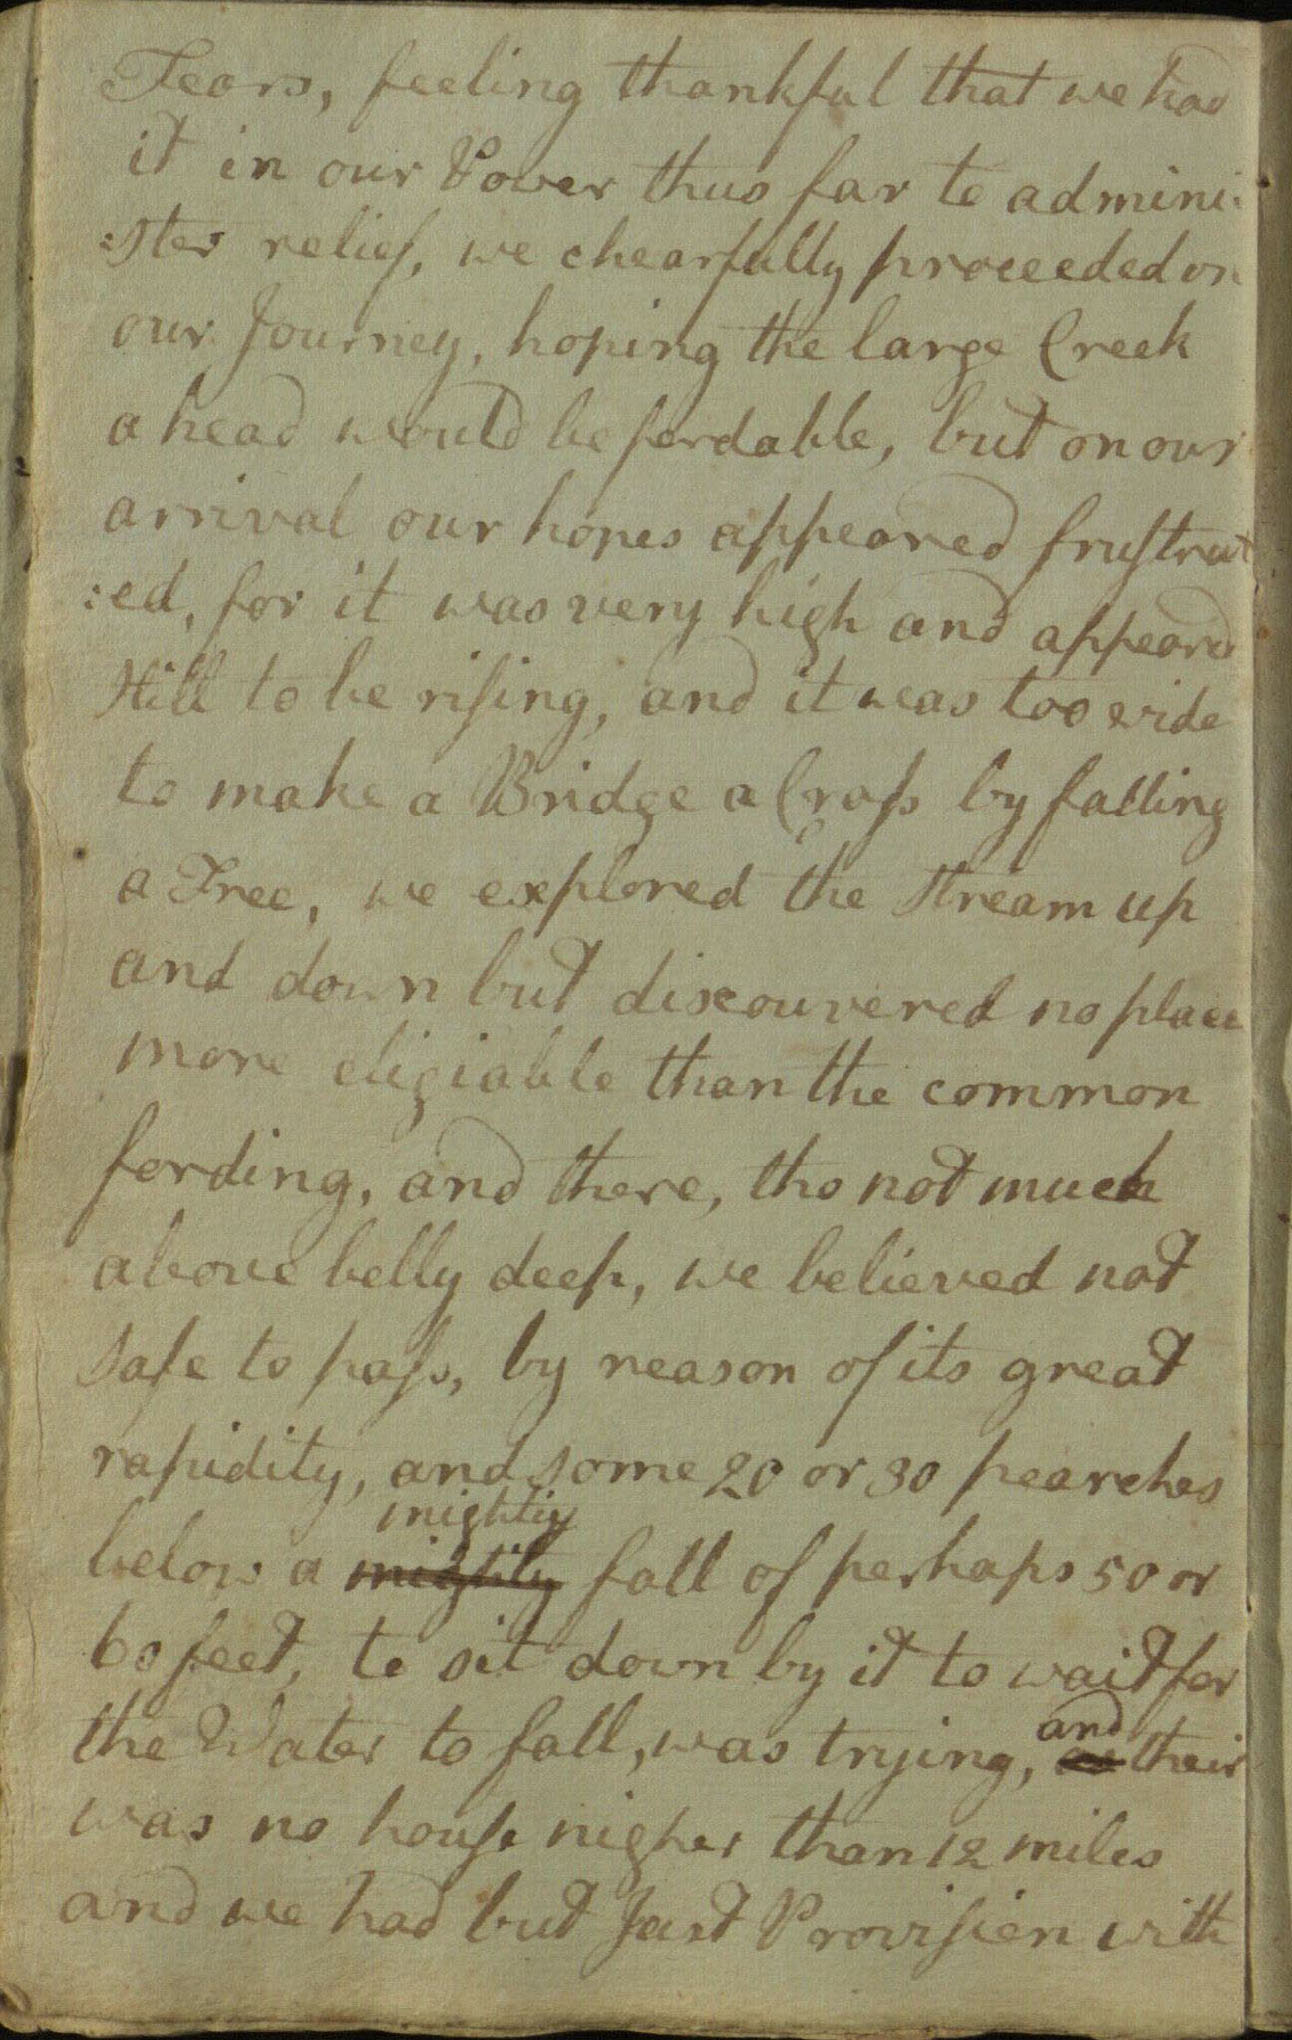 Tears, feeling thankful that we had
it in our Power thus far to admini:
:ster relief, we chearfully proceeded on
our Journey, hoping the large Creek
a head would be fordable, but on our
arrival our hopes appeared frustrat
:ed, for it was very high and appeard
still to be rising, and it was too wide
to make a Bridge a Cross by falling
a Tree, we explored the stream up
and down but discouvered no place
more eligiable than the common
fording, and there, tho not much
above belly deep, we believed not
safe to pass, by reason of its great
rapidity, and some 20 or 30 pearches
mightiy
below a mightily fall of perhaps 50 or
60 feet, to sit down by it to wait for
and
the Water to fall, was trying, as their
was no house nigher than 12 miles
and we had but Just Provision with